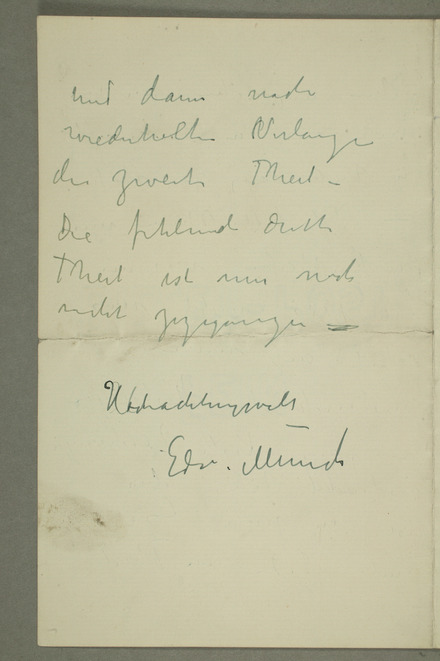 und dann nach
wiederholten Verlangen
den zweiten Theil –
Die fehlend dritte
Theil ist mir noch
nicht zugegangen =
Hochachtungsvoll
Edv. Munch